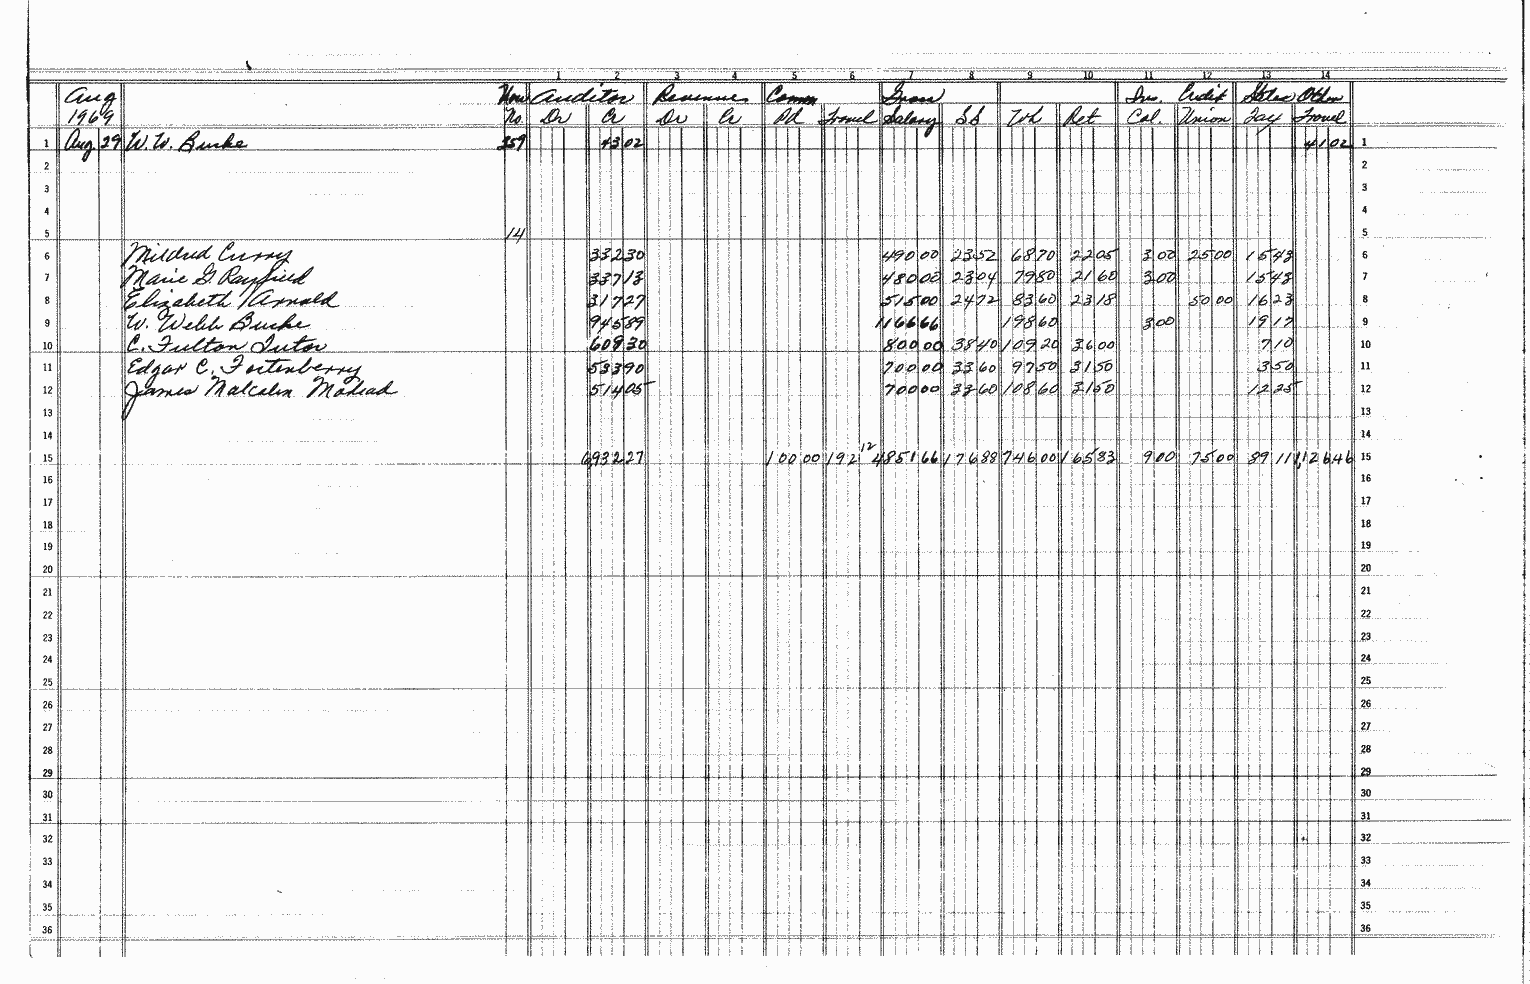 1 2 3 4 5 6 7 8 9 10 11 12 13 14
Aug Auditor Revenues Comm Gross Ins. Credit States Other
1969 No. Dr Cr Dr Cr Pd Travel Salary SS Wh Ret Col. Union Tax Travel
1 Aug 29 W. W. Burke 359 4302 4102 1
2 2
3 3
4 4
5 14 5
6 Mildred Curry 33230 49000 2352 6870 2205 300 2500 1543 6
7 Marie G. Rayfield 33713 48000 2304 7980 2160 300 1543 7
8 Elizabeth Arnold 31727 51500 2472 8360 2318 5000 1623 8
9 W. Webb Burke 94589 116666 19860 300 1917 9
10 C. Fulton Tutor 60930 80000 3840 10920 3600 710 10
11 Edgar C. Fortenberry 53390 70000 3360 9750 3150 350 11
12 James Malcolm Modead 51405 70000 3360 10860 3150 1225 12
13 13
14 14
15 693227 10000 192 12 485166 17688 74600 16583 900 7500 8911 1,12646 15
16 16
17 17
18 18
19 19
20 20
21 21
22 22
23 23
24 24
25 25
26 26
27 27
28 28
29 29
30 30
31 31
32 32
33 33
34 34
35 35
36 36